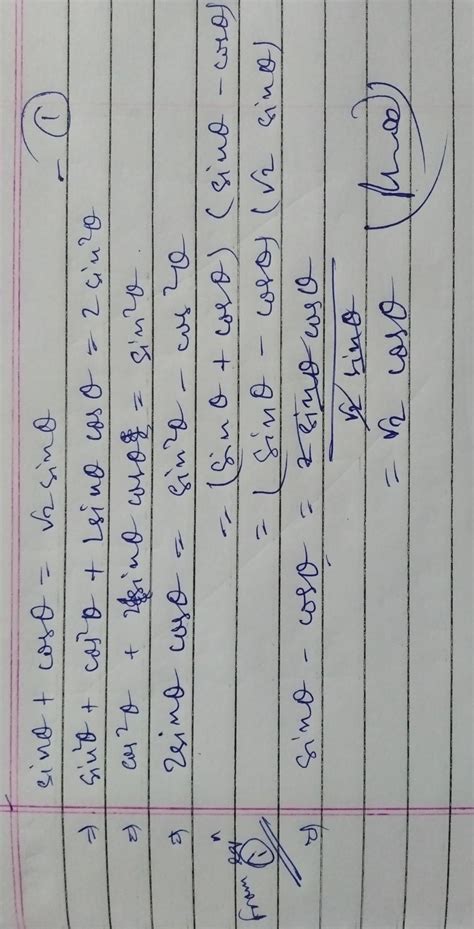 sinθ + cosθ = √2 sinθ - ①
⇒) sin²θ + cos²θ + 2sinθ cosθ = 2 sin²θ
⇒) cos²θ + 2sinθ cosθ = sin²θ.
⇒) 2sinθ cosθ = sin²θ - cos²θ
= (sinθ + cosθ) (sinθ - cosθ)
from eqⁿ ① = (sinθ - cosθ) (√2 sinθ)
⇒) sinθ - cosθ = 2 sinθ cosθ / √2 sinθ
= √2 cosθ